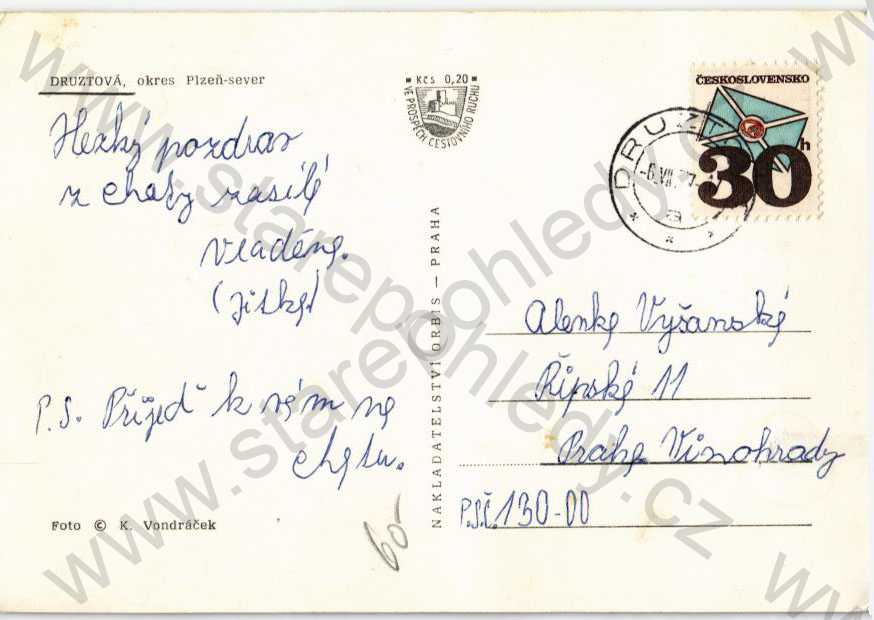 DRUZTOVÁ, okres Plzeň-sever
Kčs 0,20
VE PROSPĚCH CESTOVNÍHO RUCHU
ČESKOSLOVENSKO
30h
DRUZT
-6.VII.77-
a
Hezký pozdrav
z chaty zasílá
Vladěna.
(Jitka)
P.S. Přijeď k nám na
chatu.
Foto © K. Vondráček
NAKLADATELSTVÍ ORBIS — PRAHA
Alenka Vyšanská
Řipská 11
Praha Vinohrady
P.S.Č. 130-00
60-
www.starepohledy.cz